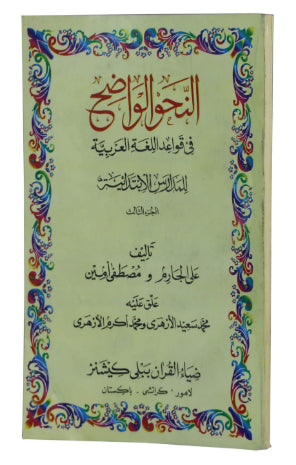 النحو الواضح
في قواعد اللغة العربية
للمدارس الابتدائية
الجزء الثالث
تأليف
علي الجارم و مصطفى أمين
علق عليه
محمد سعيد الأزهري و محمد أكرم الأزهري
ضياء القرآن پبلی کیشنز
لاہور - کراچی - پاکستان